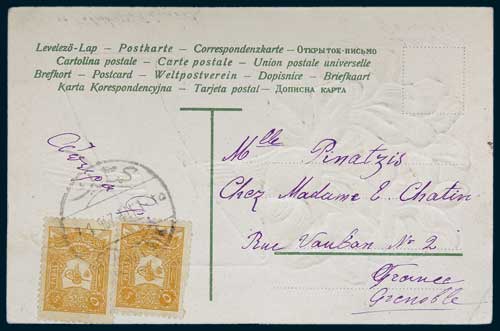 Levelező-Lap – Postkarte – Correspondenzkarte – Открыток-письмо
Cartolina postale – Carte postale – Union postale universelle
Brefkort – Postcard – Weltpostverein – Dopisnice – Briefkaart
Karta Korespondencyjna – Tarjeta postal – Дописна карта
Mlle Pinatzis
Chez Madame E. Chatin
Rue Vauban No 2
France
Grenoble